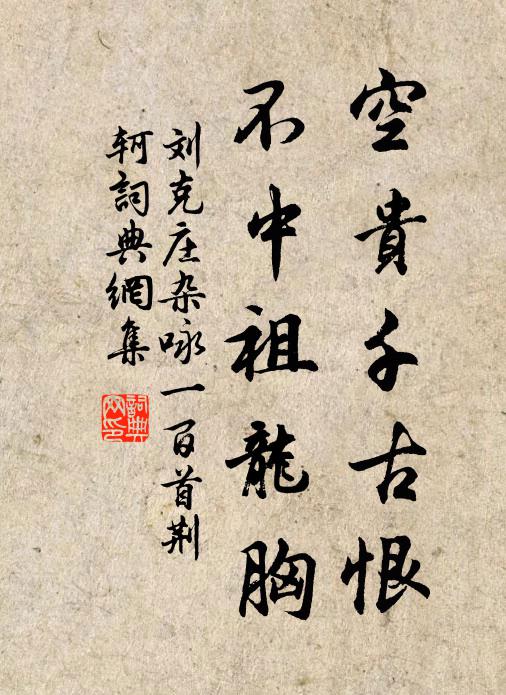 空貴千古恨
不中祖龍胸
刘克庄杂咏一百首荆
轲詞典網集
詞典
网印